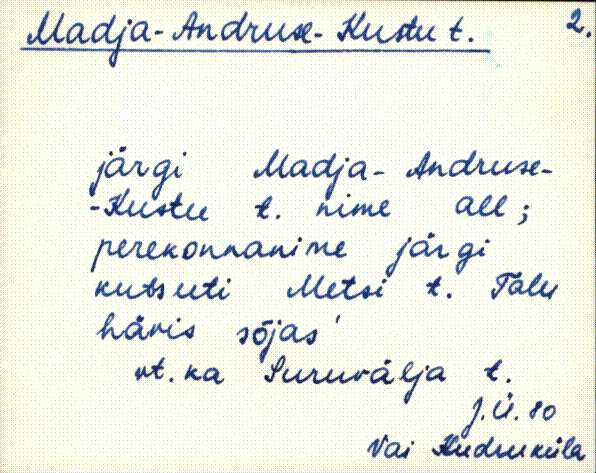 Madja-Andruse-Kustu t. 2.
järgi Madja-Andruse-
-Kustu t. nime all;
perekonnanime järgi
kutsuti Metsi t. Talu
hävis sõjas'
vt. ka Suruvälja t.
J.Ü. 80
Vai Kudruküla